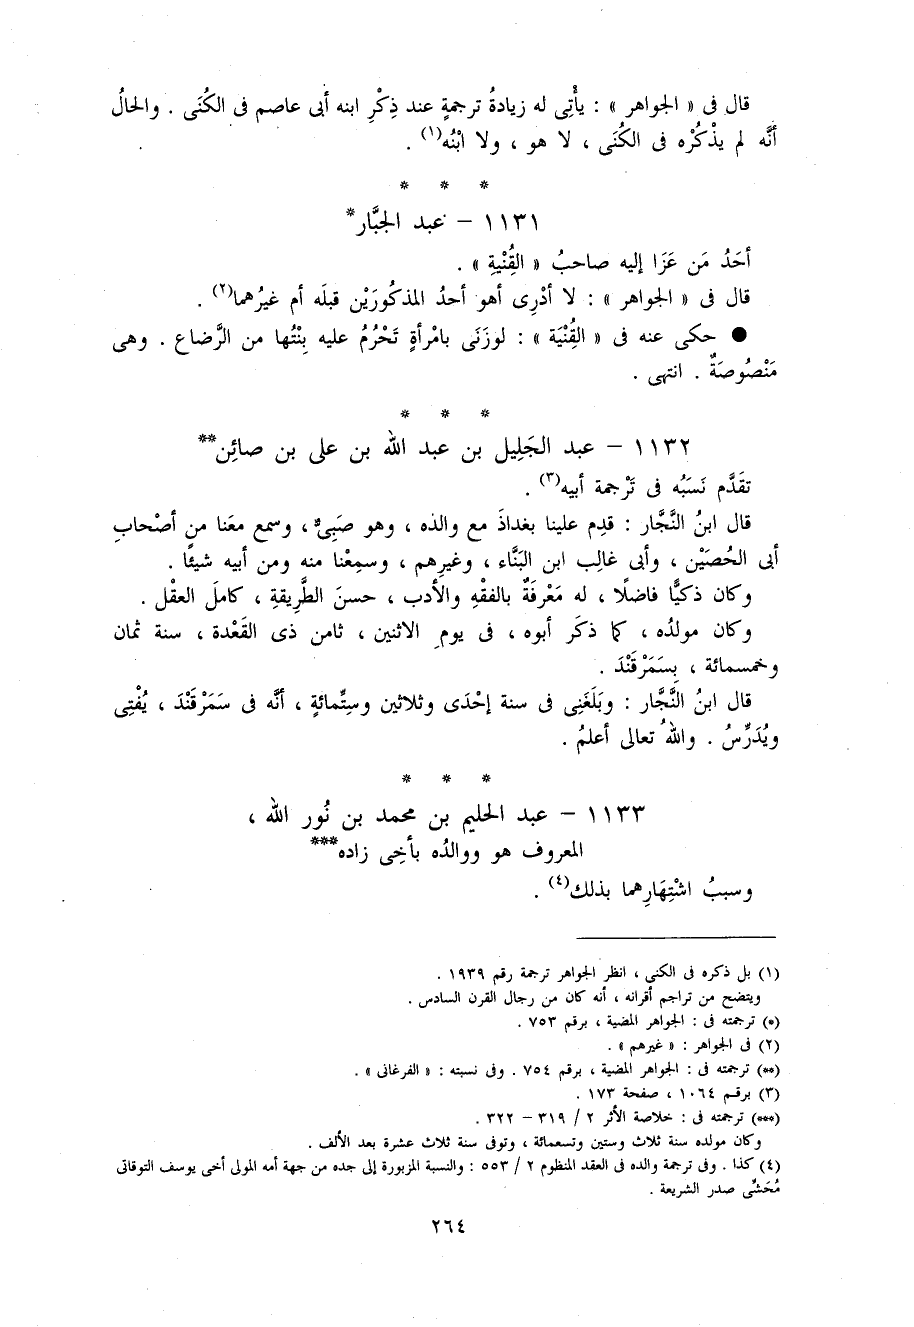 قال فى « الجواهر » : يأْتِى له زيادةُ ترجمةٍ عند ذِكْرِ ابنه أبى عاصم فى الكُنَى . والحالُ
أنَّه لم يذْكُرْه فى الكُنَى ، لا هو ، ولا ابْنُه(١) .
* * *
١١٣١ – عبد الجبَّار*
أحَدُ مَن عَزَا إليه صاحبُ « القُنْيةِ » .
قال فى « الجواهر » : لا أدْرِى أهو أحدُ المذكُورَيْن قبلَه أم غيرُهما(٢) .
● حكى عنه فى « القُنْيَة » : لوزَنَى بامْرأةٍ تَحْرُمُ عليه بِنْتُها من الرَّضاع . وهى
مَنْصُوصَةٌ . انتهى .
* * *
١١٣٢ – عبد الجَلِيل بن عبد الله بن على بن صائِن**
تقَدَّم نَسَبُه فى تَرْجمة أبيه(٣) .
قال ابنُ النَّجَّار : قدِم علينا بغداذَ مع والذه ، وهو صَبِىٌّ ، وسمع معَنا من أصْحابِ
أبى الحُصَيْن ، وأبى غالِب ابن البَنَّاء ، وغيرِهم ، وسمِعْنا منه ومن أبيه شيئًا .
وكان ذكيًّا فاضلًا ، له مَعْرفَةٌ بالفقْهِ والأدب ، حسنَ الطَّرِيقةِ ، كاملَ العقْل .
وكان مولدُه ، كما ذكَر أبوه ، فى يوم الاثنين ، ثامن ذى القَعْدة ، سنة ثمان
وخمسمائة ، بِسَمَرْقَنْدَ .
قال ابنُ النَّجَّار : وبَلَغَنِى فى سنة إحْدَى وثلاثين وسِتِّمائةٍ ، أنَّه فى سَمَرْقَنْدَ ، يُفْتِى
ويُدَرِّسُ . واللهُ تعالى أعلمُ .
* * *
١١٣٣ – عبد الحليم بن محمد بن نُور الله ،
المعروف هو ووالدُه بأخِى زاده***
وسببُ اشْتِهَارِهما بذلك(٤) .
(١) بل ذكره فى الكنى ، انظر الجواهر ترجمة رقم ١٩٣٩ .
ويتضح من تراجم أقرانه ، أنه كان من رجال القرن السادس .
(*) ترجمته فى : الجواهر المضية ، برقم ٧٥٣ .
(٢) فى الجواهر : « غيرهم » .
(**) ترجمته فى : الجواهر المضية ، برقم ٧٥٤ . وفى نسبته : « الفرغانى » .
(٣) برقم ١٠٦٤ ، صفحة ١٧٣ .
(***) ترجمته فى : خلاصة الأثر ٢ / ٣١٩ – ٣٢٢ .
وكان مولده سنة ثلاث وستين وتسعمائة ، وتوفى سنة ثلاث عشرة بعد الألف .
(٤) كذا . وفى ترجمة والده فى العقد المنظوم ٢ / ٥٥٣ : والنسبة المزبورة إلى جده من جهة أمه المولى أخى يوسف التوقاتى
مُحَشِّى صدر الشريعة .
٢٦٤